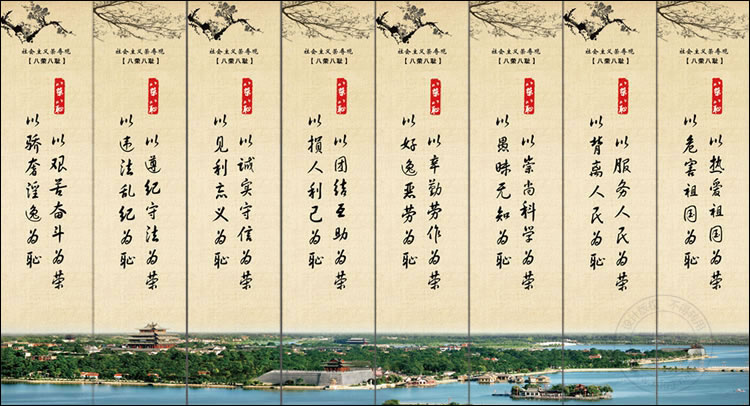 社会主义荣辱观
【八荣八耻】
八荣八耻
以热爱祖国为荣
以危害祖国为耻
社会主义荣辱观
【八荣八耻】
八荣八耻
以服务人民为荣
以背离人民为耻
社会主义荣辱观
【八荣八耻】
八荣八耻
以崇尚科学为荣
以愚昧无知为耻
社会主义荣辱观
【八荣八耻】
八荣八耻
以辛勤劳作为荣
以好逸恶劳为耻
社会主义荣辱观
【八荣八耻】
八荣八耻
以团结互助为荣
以损人利己为耻
社会主义荣辱观
【八荣八耻】
八荣八耻
以诚实守信为荣
以见利忘义为耻
社会主义荣辱观
【八荣八耻】
八荣八耻
以遵纪守法为荣
以违法乱纪为耻
社会主义荣辱观
【八荣八耻】
八荣八耻
以艰苦奋斗为荣
以骄奢淫逸为耻